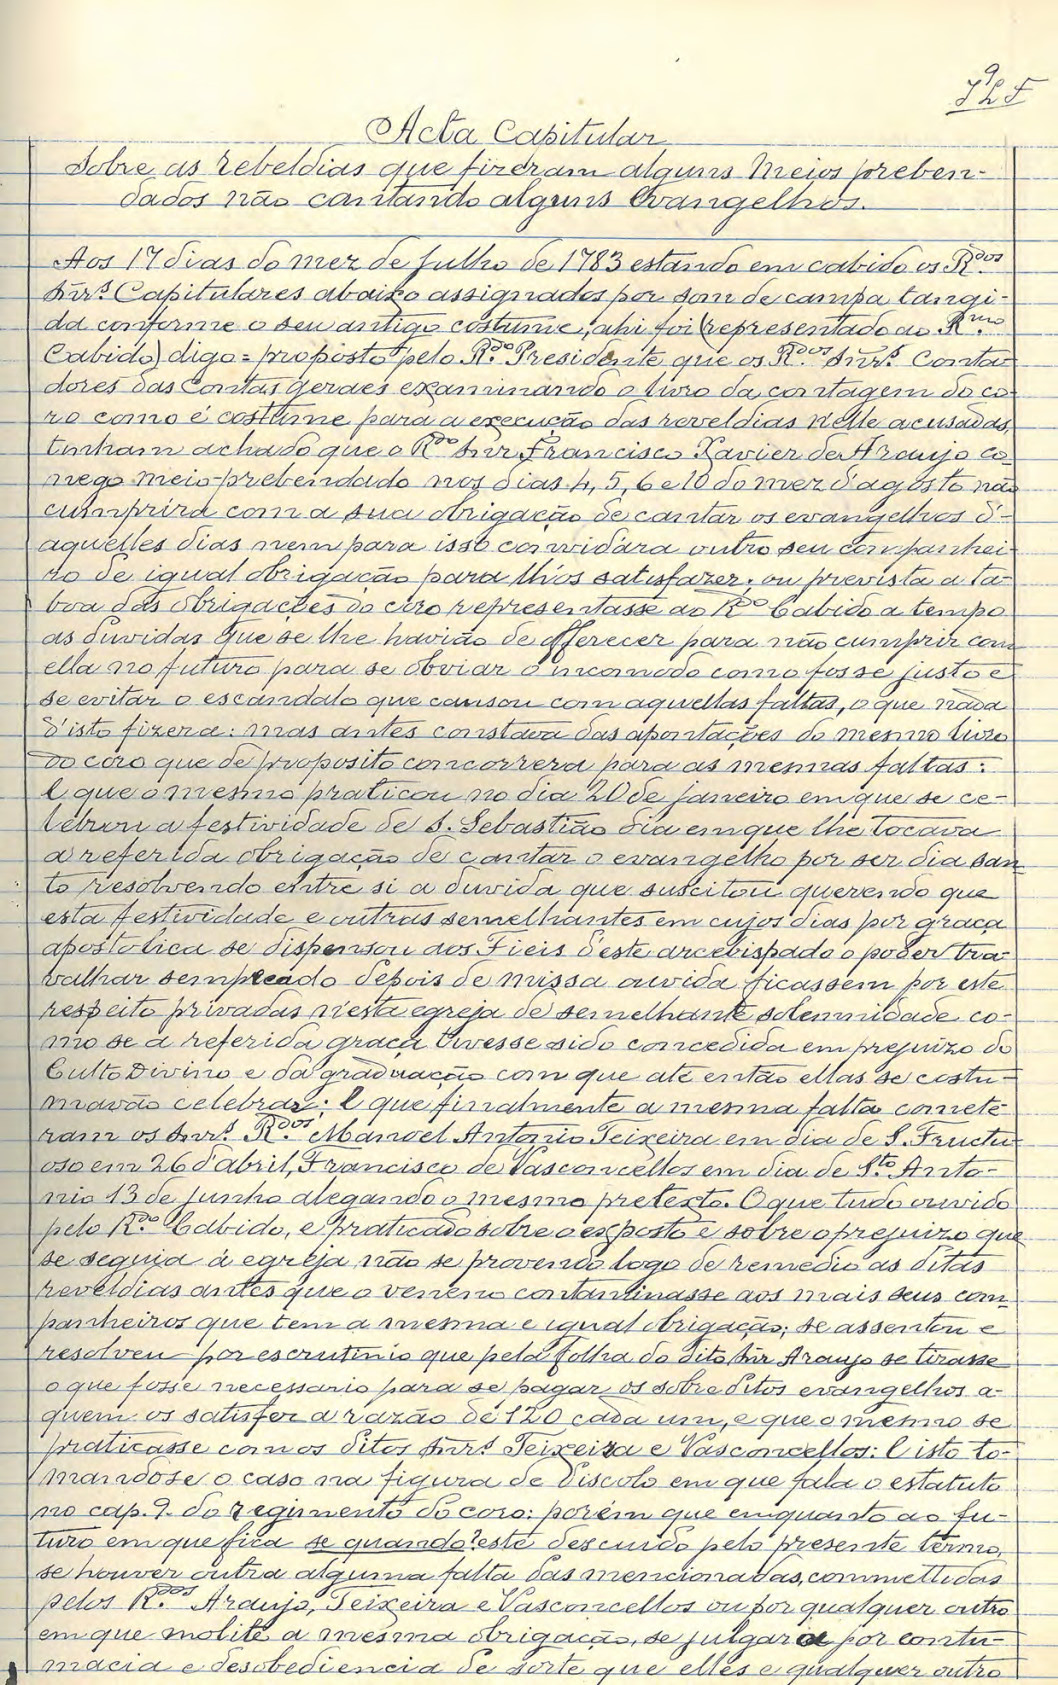 9
Acta Capitular
Sobre as rebeldias que fizeram alguns Meios preben-
dados não cantando alguns evangelhos.
Aos 17 dias do mez de Julho de 1783 estando em cabido os R.dos
Snr.s Capitulares abaixo assignados por som de campa tangi-
da conforme o seu antigo costume, ahi foi (representado ao R.mo
Cabido) digo = proposto pelo R.do Presidente, que os R.dos Snr.s Conta-
dores das Contas geraes examinando o livro da contagem do co-
ro como é costume para a execução das reveldias n'elle acusadas,
tinham achado que o R.do Snr Francisco Xavier de Araujo co-
nego meio-prebendado nos dias 4, 5, 6 e 10 do mez d'agosto não
cumprira com a sua obrigação de cantar os evangelhos d'-
aquelles dias nem para isso convidara outro seu companhei-
ro de igual obrigação para lh'os satisfazer; ou prevista a ta-
boa das obrigações do coro representasse ao R.do Cabido a tempo
as duvidas que se lhe havião de offerecer para não cumprir com
ella no futuro para se obviar o incomodo como fosse justo e
se evitar o escandalo que causou com aquellas faltas, o que nada
d'isto fizera: mas antes constava das apontações do mesmo livro
do coro que de proposito concorrera para as mesmas faltas:
E que o mesmo praticou no dia 20 de janeiro em que se ce-
lebrou a festividade de S. Sebastião dia em que lhe tocava
a referida obrigação de cantar o evangelho por ser dia san-
to resolvendo entre si a duvida que suscitou querendo que
esta festividade e outras semelhantes em cujos dias por graça
apostolica se dispensou aos Fieis d'este arcebispado o poder tra-
balhar sempreado depois de missa ouvida ficassem por este
respeito privadas n'esta egreja de semelhante solemnidade co-
mo se a referida graça tivesse sido concedida em prejuizo do
Culto Divino e da graduação com que até então ellas se costu-
mavão celebrar; E que finalmente a mesma falta comete-
ram os Snr.s R.dos Manoel Antonio Teixeira em dia de S. Fructu-
oso em 26 d'abril, Francisco de Vasconcellos em dia de S.to Anto-
nio 13 de junho alegando o mesmo pretexto. O que tudo ouvido
pelo R.do Cabido, e praticado sobre o exposto e sobre o prejuizo que
se seguia á egreja não se provendo logo de remedio as ditas
reveldias antes que o veneno contaminasse aos mais seus com-
panheiros que tem a mesma e igual obrigação; se assentou e
resolveu por escrutinio que pela folha do dito Snr Araujo se tirasse
o que fosse necessario para se pagar os sobreditos evangelhos a-
quem os satisfez a razão de 120 cada um, e que o mesmo se
praticasse com os ditos Snr.s Teixeira e Vasconcellos: E isto to-
mandose o caso na figura de discolo em que fala o estatuto
no cap. 9. do regimento do coro: porém que emquanto ao fu-
turo em que fica se quando? este descuido pelo presente termo,
se houver outra alguma falta das mencionadas, commettidas
pelos R.dos Araujo, Teixeira e Vasconcellos ou por qualquer outro
em que molite a mesma obrigação, se julgara por contu-
macia e desobediencia de sorte que elles e qualquer outro